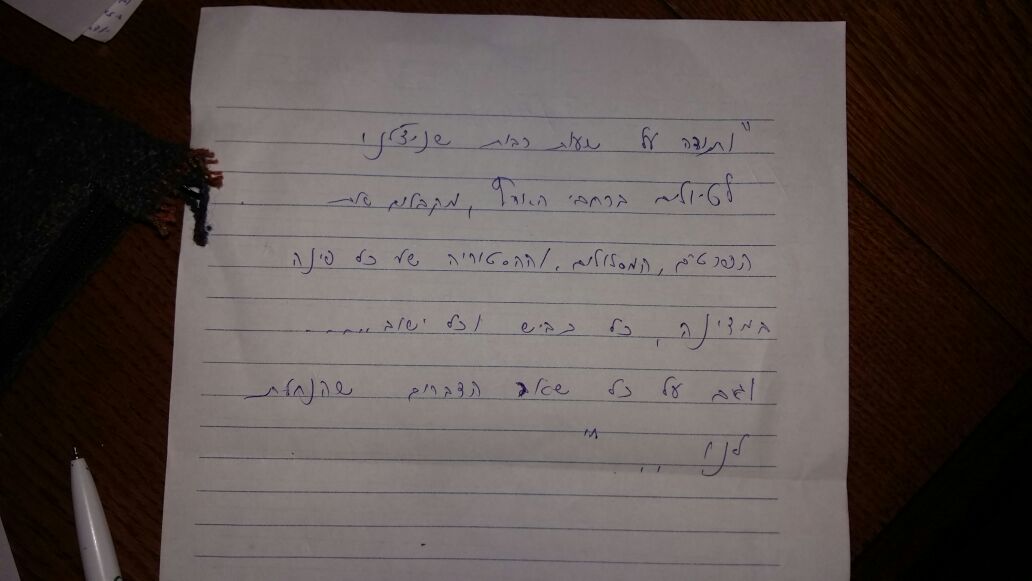 "ותודה על שעות רבות שניצלנו
לטיולים ברחבי הארץ, מקבלים את
הפרטים, המסלולים, וההסטוריה של כל פינה
במדינה, כל כביש וכל ישוב.....
וגם על כל שאר הדברים שהנחלת
לנו ..."